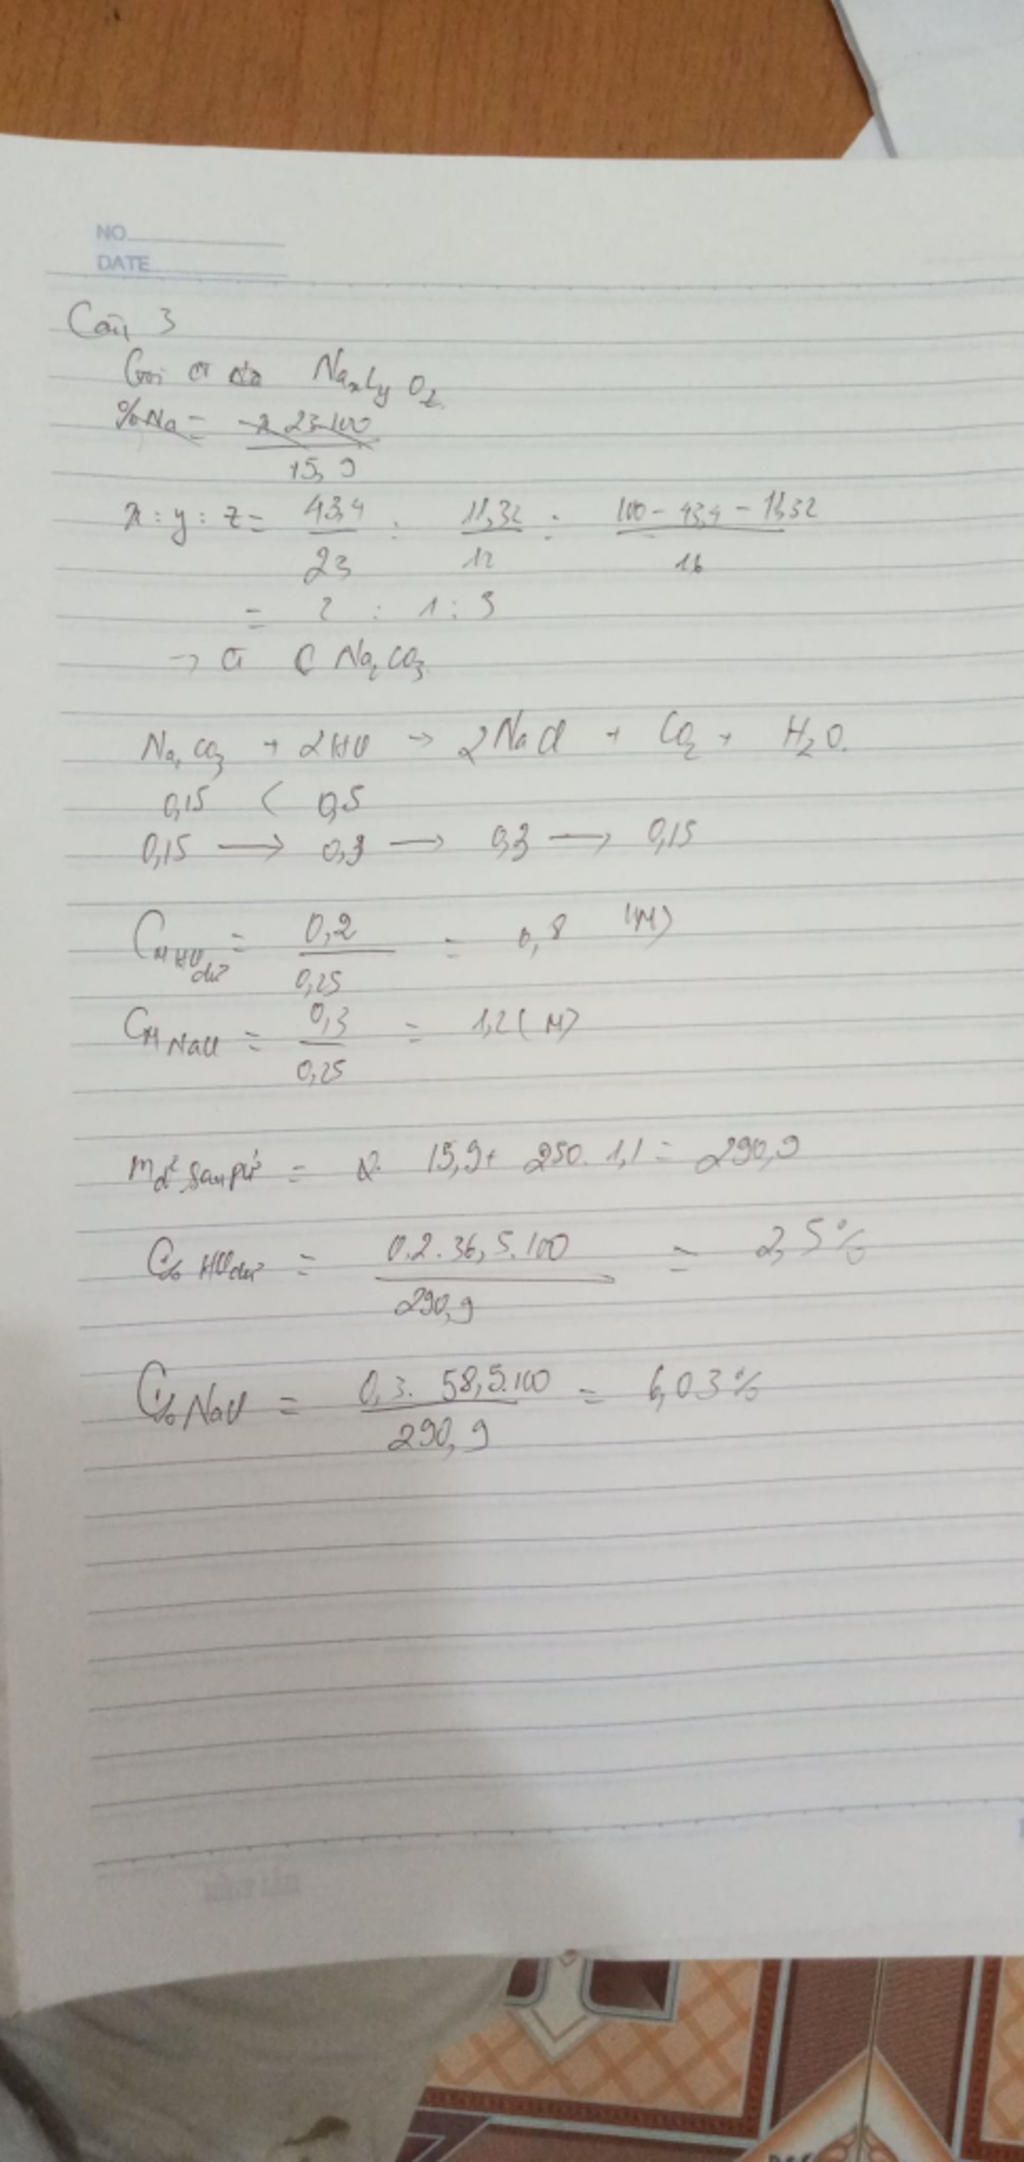 NO
DATE
Câu 3
Gọi a là NaxCyOz
%Na = x 23.100 / 15,9
x : y : z = 43,4 / 23 : 11,32 / 12 : 100 - 43,4 - 11,32 / 16
= 2 : 1 : 3
→ a Na2CO3
Na2CO3 + 2HCl → 2NaCl + CO2 + H2O.
0,15 < 0,5
0,15 → 0,3 → 0,3 → 0,15
CM HCl dư = 0,2 / 0,25 = 0,8 (M)
CM NaCl = 0,3 / 0,25 = 1,2 (M)
md² sau pứ = 15,9 + 250. 1,1 = 290,9
C% HCl dư = 0.2. 36,5.100 / 290,9 = 2,5%
C% NaCl = 0,3. 58,5.100 / 290,9 = 6,03%